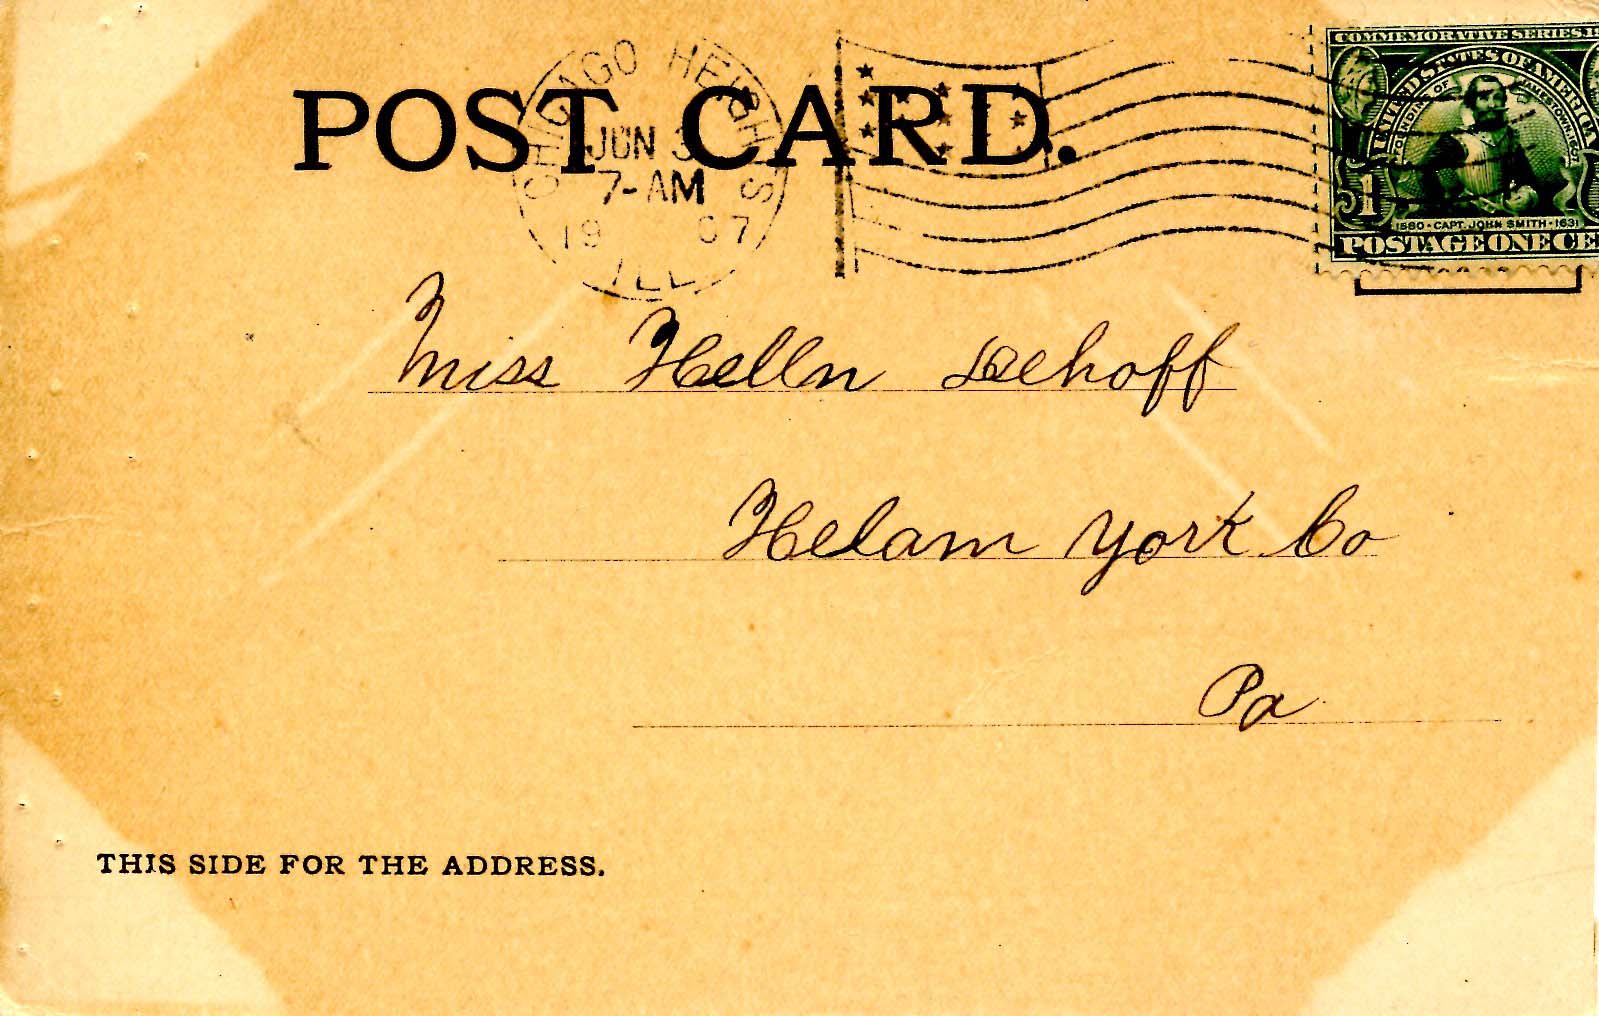 POST CARD.
CHICAGO HEIGHTS
JUN 3
7-AM
1907
ILL.
COMMEMORATIVE SERIES, 1
UNITED STATES OF AMERICA
FOUNDING OF JAMESTOWN 1607
1
1580 - CAPT. JOHN SMITH - 1631
POSTAGE ONE CE
Miss Helln
Helam York Co
Pa
THIS SIDE FOR THE ADDRESS.